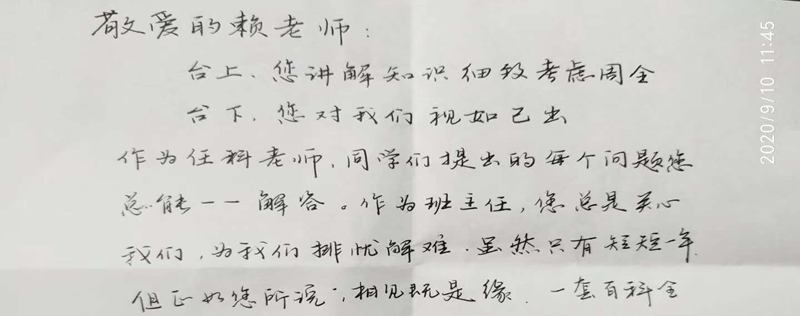 敬爱的赖老师：
台上、您讲解知识细致考虑周全
台下、您对我们视如己出
作为任科老师，同学们提出的每个问题您
总能一一解答。作为班主任，您总是关心
我们，为我们排忧解难．虽然只有短短一年
但正如您所说，相见既是缘．一套百科全
2020/9/10 11:45